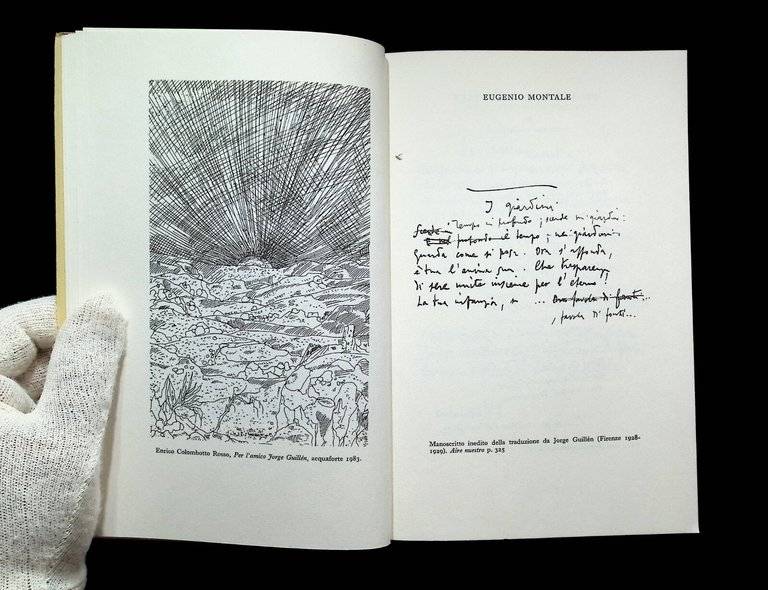 Enrico Colombotto Rosso, Per l'amico Jorge Guillén, acquaforte 1983.
EUGENIO MONTALE
I giardini
Tempo in profondo; scende in giardini:
profondo è tempo; nei giardini
Guarda come si posa. Ora s'affonda,
è tua l'anima sua. Che trasparenza
di sere unite insieme per l'eterno!
La tua infanzia, sì ... favola di fonti...
, favola di fonti...
Manoscritto inedito della traduzione da Jorge Guillén (Firenze 1928-
1929). Aire nuestro p. 325